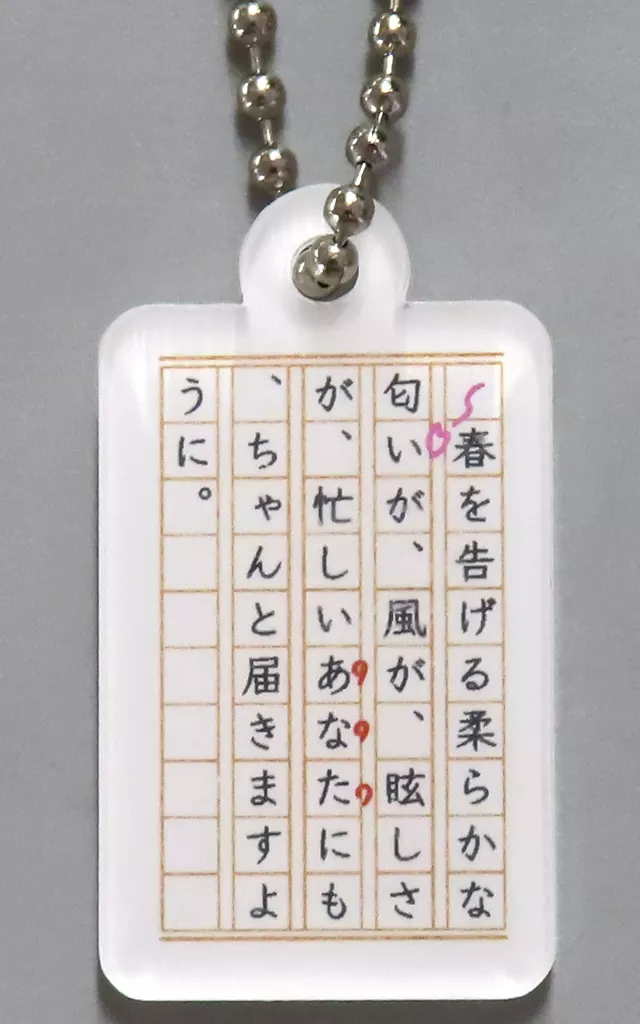 春を告げる柔らかな
匂いが、風が、眩しさ
が、忙しいあなたにも
、ちゃんと届きますよ
うに。